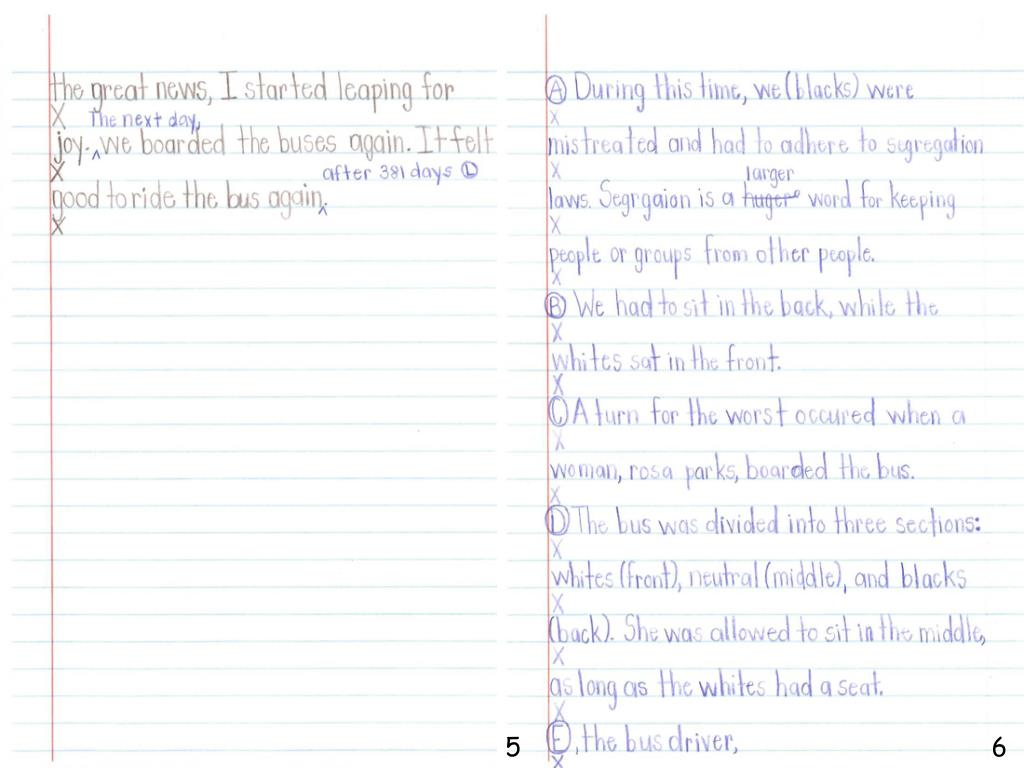 the great news, I started leaping for
X The next day,
joy. ^ we boarded the buses again. It felt
X after 381 days Ⓛ
good to ride the bus again^.
X
5
Ⓐ During this time, we (blacks) were
X
mistreated and had to adhere to segregation
X larger
laws. Segrgaion is a huger word for keeping
X
people or groups from other people.
X
Ⓑ We had to sit in the back, while the
X
whites sat in the front.
X
Ⓒ A turn for the worst occured when a
X
woman, rosa parks, boarded the bus.
X
Ⓓ The bus was divided into three sections:
X
whites (front), neutral (middle), and blacks
X
(back). She was allowed to sit in the middle,
X
as long as the whites had a seat.
X
Ⓔ, the bus driver,
X
6